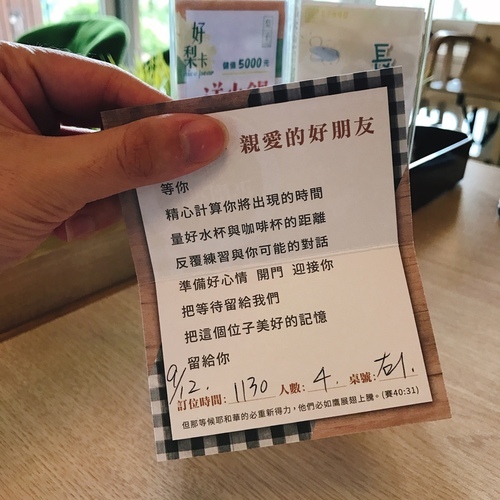 好
梨卡
儲值 5000 元
長
親愛的好朋友
等你
精心計算你將出現的時間
量好水杯與咖啡杯的距離
反覆練習與你可能的對話
準備好心情 開門 迎接你
把等待留給我們
把這個位子美好的記憶
留給你
9/12.
訂位時間: 1130 人數: 4. 桌號: 右1.
但那等候耶和華的必重新得力,他們必如鷹展翅上騰。(賽40:31)